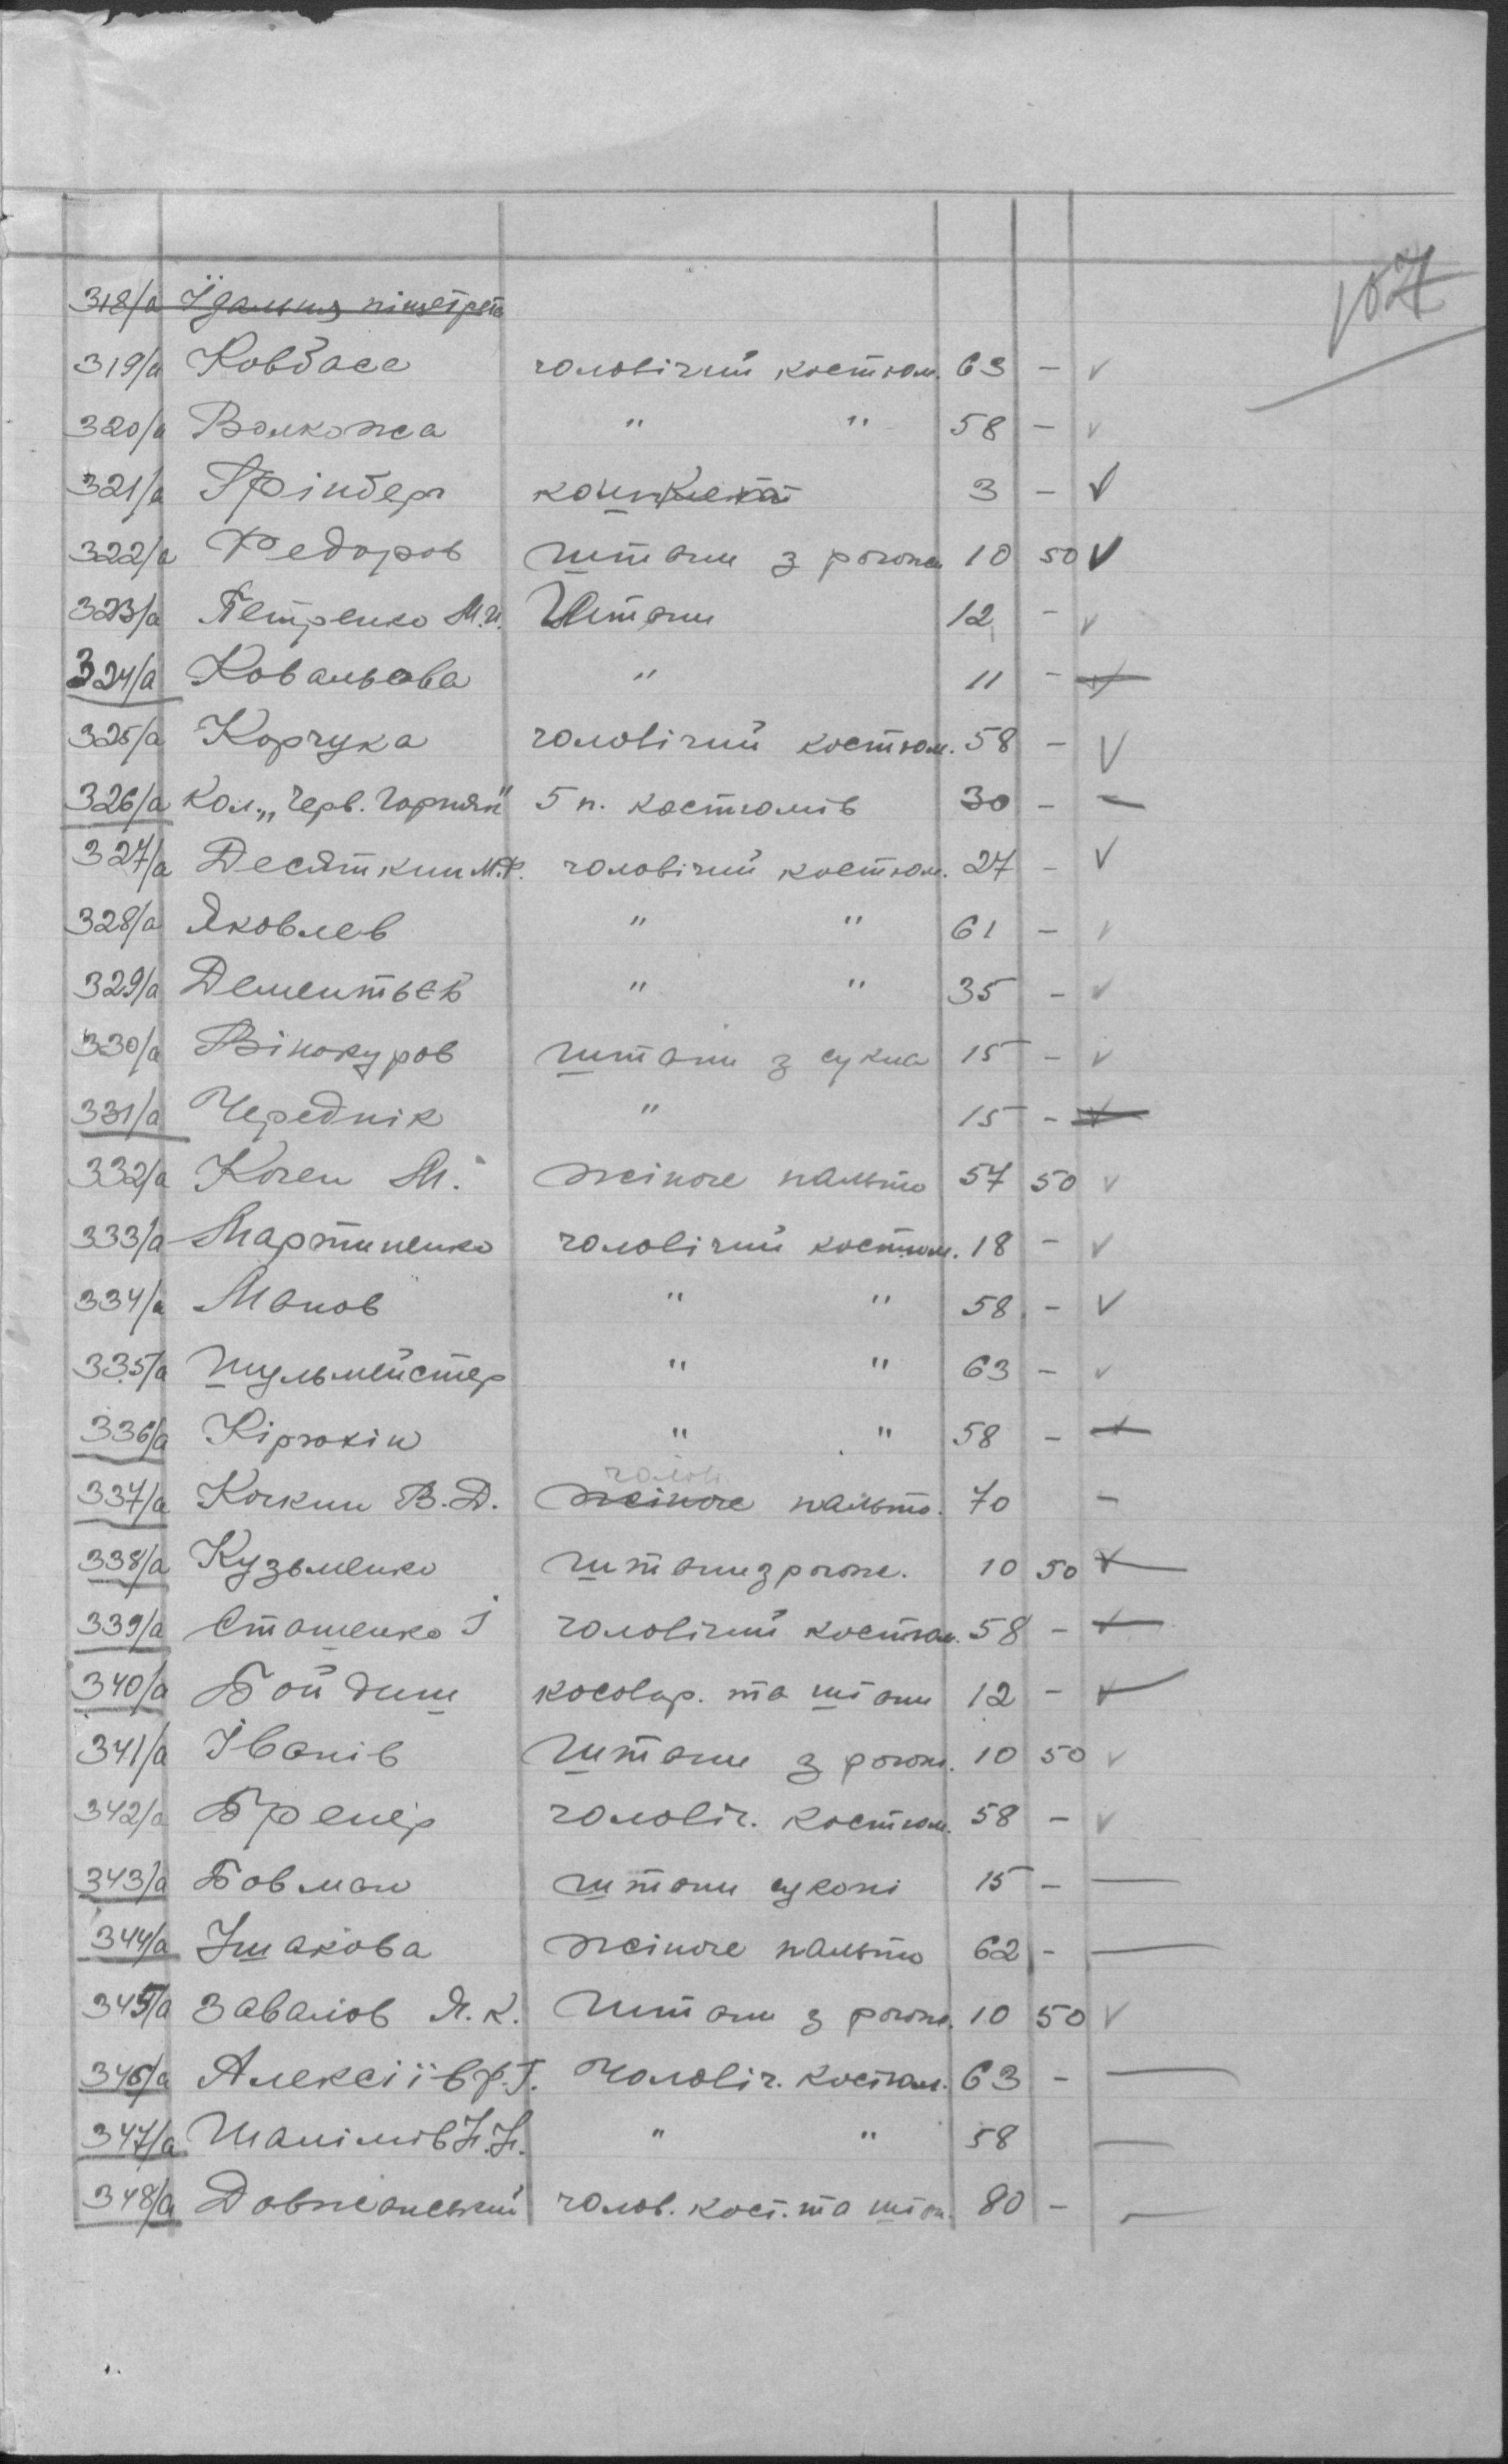 107
318/а Їдальня
319/а Ковбаса чоловічий костюм. 63 - v
320/а Волкожа " " 58 - v
321/а Грінберг 3 - v
322/а Федоров штани з рогож 10 50 v
323/а Петренко М.И. Штани 12 - v
324/а Ковальова " 11 - v
325/а Корчука чоловічий костюм. 58 - v
326/а Кол. „Черв. Гарняк" 5 п. костюмів 30 - -
327/а Десяткин М.Ф. чоловічий костюм. 27 - v
328/а Яковлев " " 61 - v
329/а Дементьєв " " 35 - v
330/а Вінокуров штани з сукна 15 - v
331/а Череднік " 15 - v
332/а Коген М. жіноче пальто 57 50 v
333/а Мартиненко чоловічий костюм. 18 - v
334/а Манов " " 58 - v
335/а Шульмейстер " " 63 - v
336/а Кірюхін " " 58 -
чолові
337/а Кочкин В.Д. жіноче пальто. 70 -
338/а Кузьменко штани з рогож. 10 50 v
339/а Сташенко І чоловічий костюм. 58 -
340/а Бойдиш косовор. та штани 12 - v
341/а Іванів Штани з рогож. 10 50 v
342/а Бренер чоловіч. костюм. 58 - v
343/а Бовман штани суконі 15 -
344/а Ушакова жіноче пальто 62 -
345/а Завалов Я.К. Штани з рогож. 10 50 v
346/а Алексіїв Ф.Г. Чоловіч. костюм. 63 -
347/а Шалімів Н.Н. " " 58
348/а Довжанський чолов. кост. та штан. 80 -